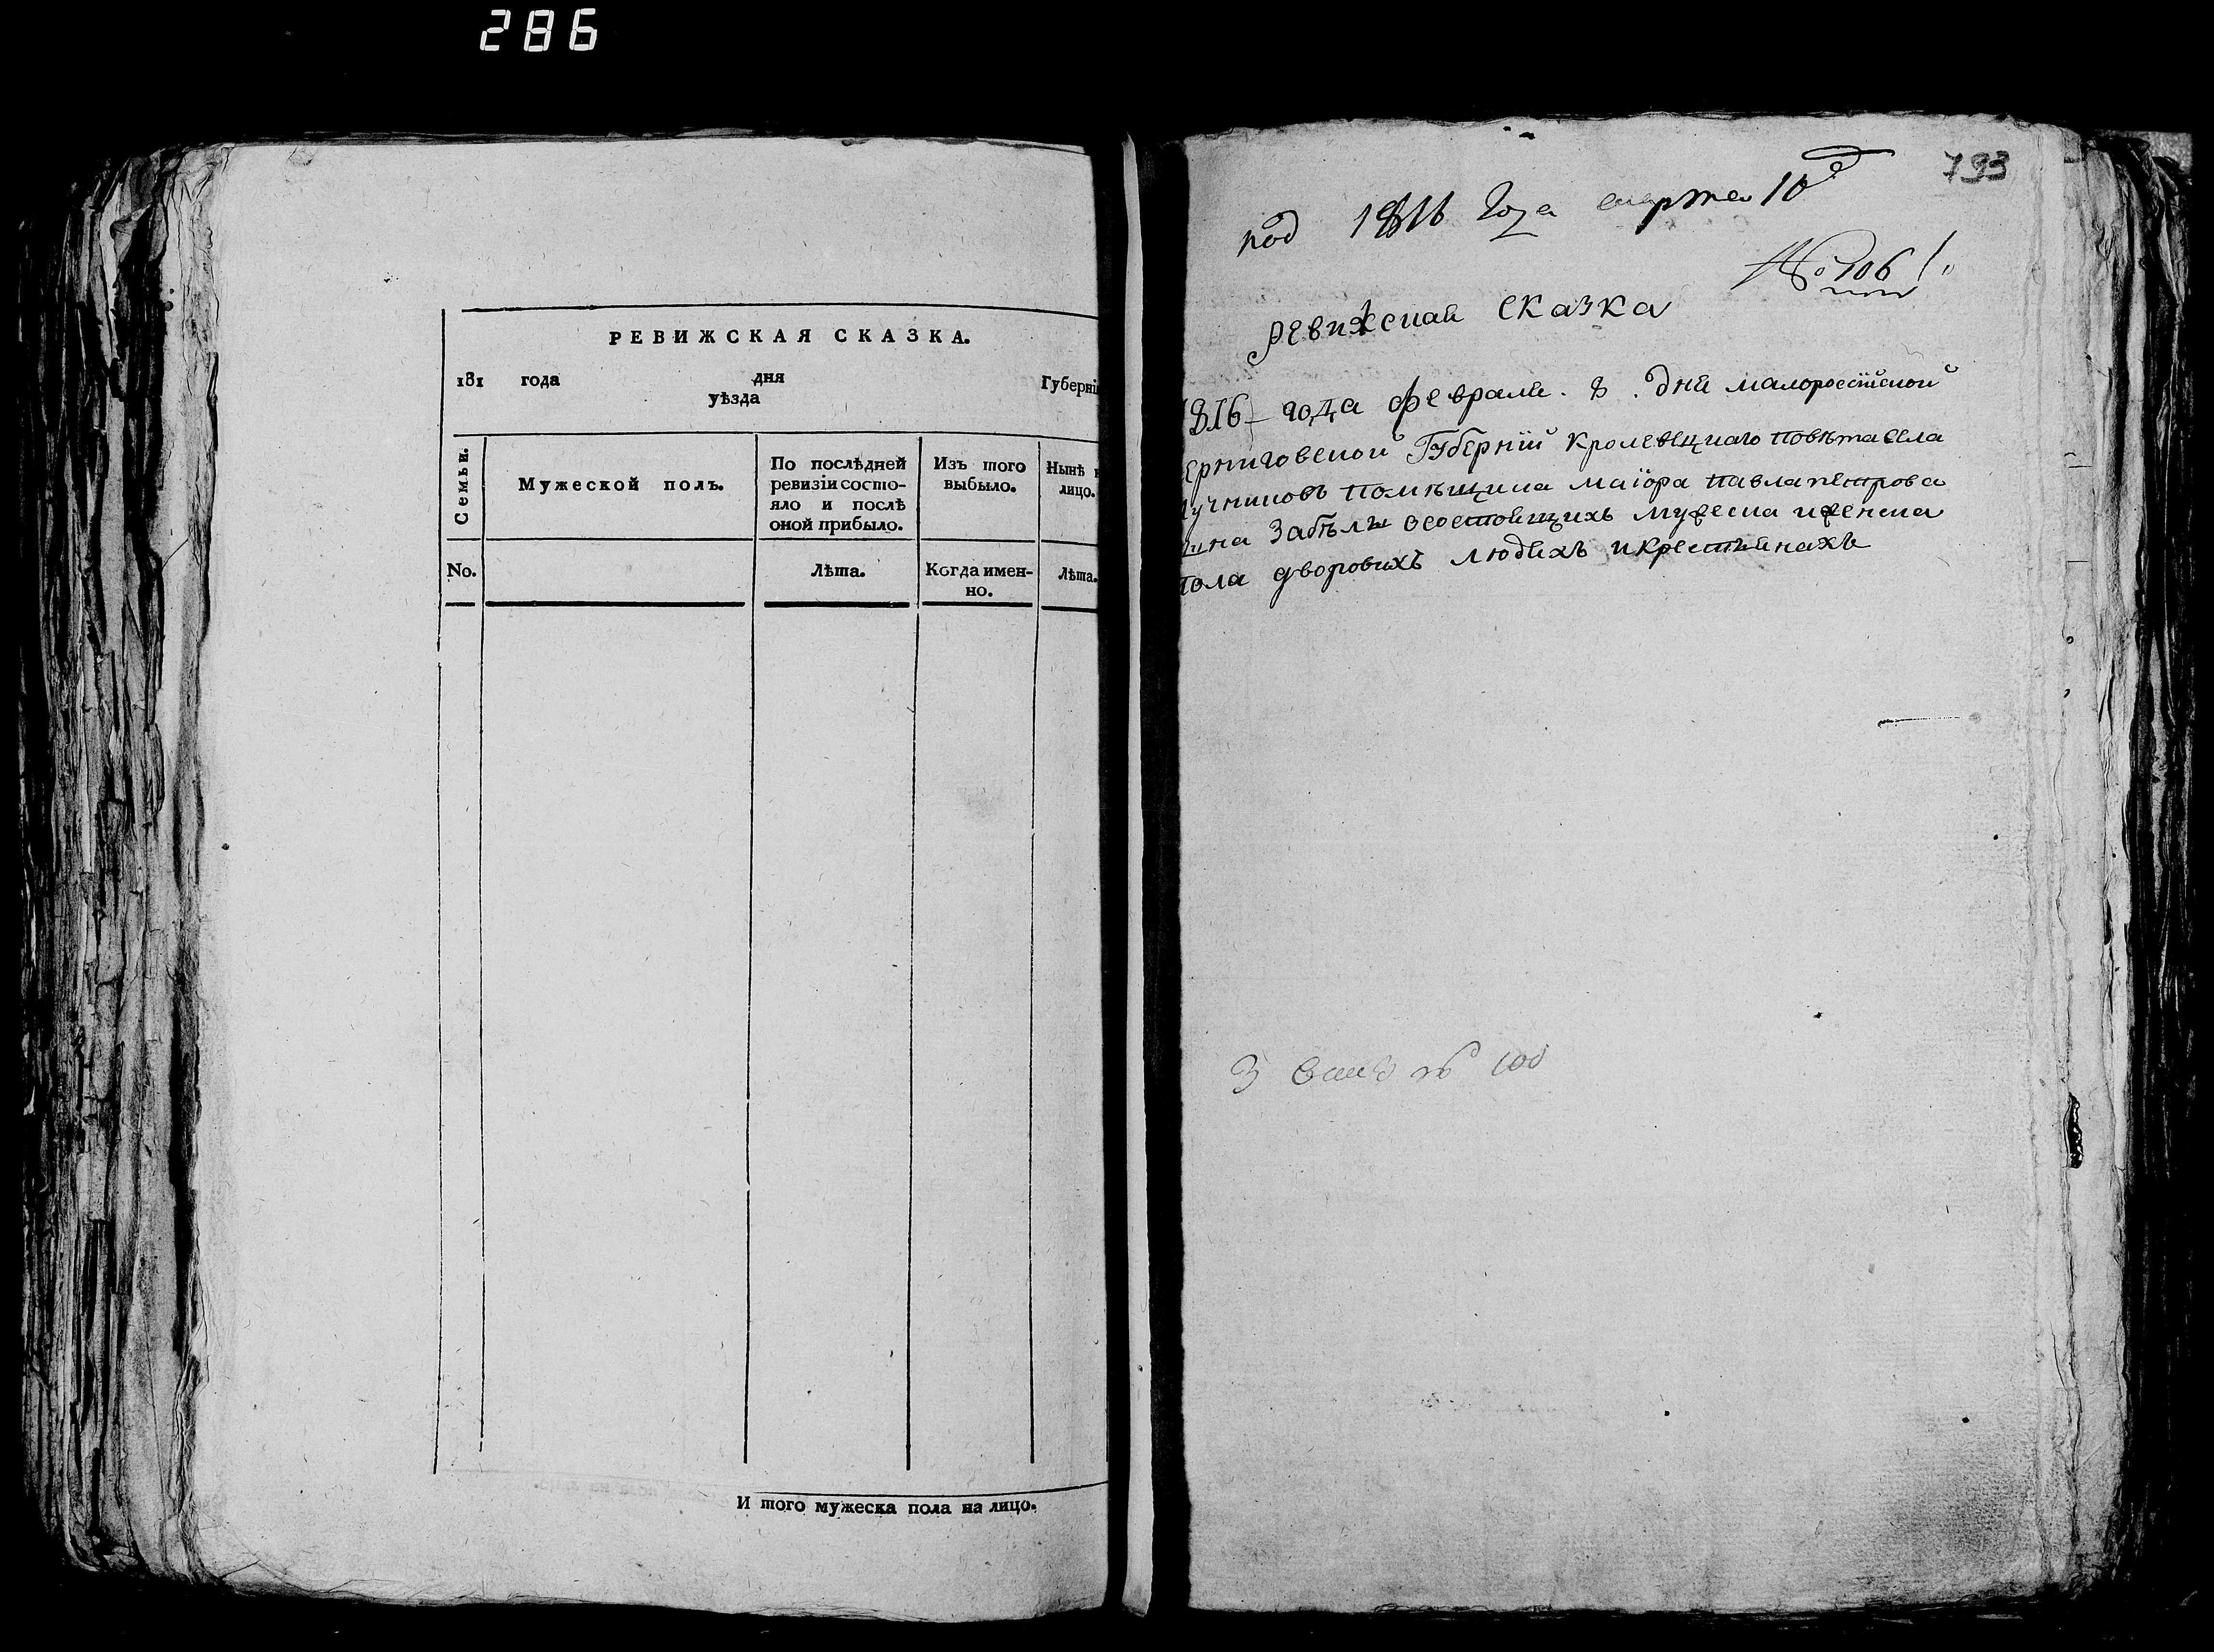 286
РЕВИЖСКАЯ СКАЗКА.
181 года дня Губерні
уѣзда
Семьи.
Мужеской полъ.
По послѣдней
ревизіи состо-
яло и послѣ
оной прибыло.
Изъ того
выбыло.
Нынѣ н
лицо.
No.
Лѣта.
Когда имен-
но.
Лѣта.
И того мужеска пола на лицо.
793
под 1816 года марта 10
№ 106
ревижская сказка
1816 года февраля 8 дня малоросійской
ерниговской Губерніи Кролевецкаго повѣта села
учниковъ помѣщика маіора павла петрова
сина Забѣлы осостоящихъ мужеска иженска
пола дворовихъ людяхъ икрестьянахъ
100